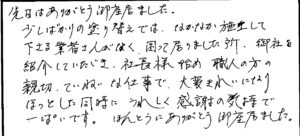 先日はありがとう御座居ました。
少しばかりの塗り替えでは、なかなか施工して
下さる業者さんがなく、困って居りました所、御社を
紹介していただき、社長様始め職人の方の
親切、ていねいな仕事で、大変きれいになり
ほっとした同時にうれしく感謝の気持で
一ぱいです。ほんとうにありがとう御座居ました。